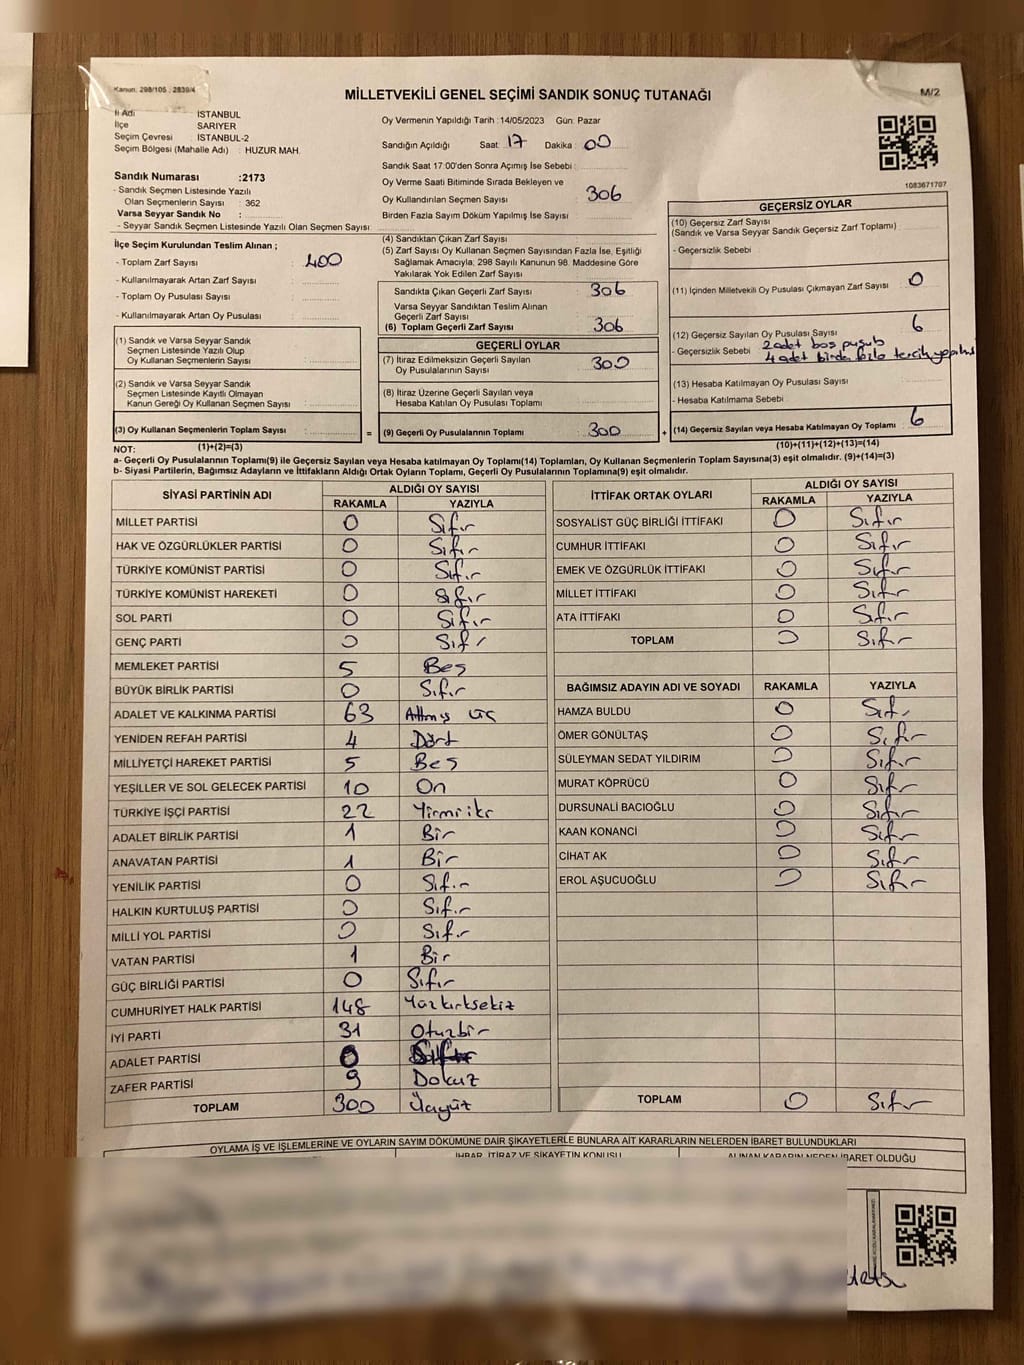 Kanun: 298/105 ; 2839/4
MİLLETVEKİLİ GENEL SEÇİMİ SANDIK SONUÇ TUTANAĞI
M/2
İl Adı İSTANBUL
İlçe SARIYER
Seçim Çevresi : İSTANBUL-2
Seçim Bölgesi (Mahalle Adı) : HUZUR MAH.
Sandık Numarası :2173
- Sandık Seçmen Listesinde Yazılı
Olan Seçmenlerin Sayısı : 362
Varsa Seyyar Sandık No :
- Seyyar Sandık Seçmen Listesinde Yazılı Olan Seçmen Sayısı:
İlçe Seçim Kurulundan Teslim Alınan ;
- Toplam Zarf Sayısı : 400
- Kullanılmayarak Artan Zarf Sayısı :
- Toplam Oy Pusulası Sayısı :
- Kullanılmayarak Artan Oy Pusulası :
(1) Sandık ve Varsa Seyyar Sandık
Seçmen Listesinde Yazılı Olup
Oy Kullanan Seçmenlerin Sayısı :
(2) Sandık ve Varsa Seyyar Sandık
Seçmen Listesinde Kayıtlı Olmayan
Kanun Gereği Oy Kullanan Seçmen Sayısı :
(3) Oy Kullanan Seçmenlerin Toplam Sayısı :
(1)+(2)=(3)
Oy Vermenin Yapıldığı Tarih : 14/05/2023 Gün: Pazar
Sandığın Açıldığı Saat: 17 Dakika : 00
Sandık Saat 17:00'den Sonra Açımış İse Sebebi :
Oy Verme Saati Bitiminde Sırada Bekleyen ve
Oy Kullandırılan Seçmen Sayısı : 306
Birden Fazla Sayım Döküm Yapılmış İse Sayısı :
(4) Sandıktan Çıkan Zarf Sayısı :
(5) Zarf Sayısı Oy Kullanan Seçmen Sayısından Fazla İse, Eşitliği
Sağlamak Amacıyla; 298 Sayılı Kanunun 98. Maddesine Göre
Yakılarak Yok Edilen Zarf Sayısı :
Sandıkta Çıkan Geçerli Zarf Sayısı : 306
Varsa Seyyar Sandıktan Teslim Alınan
Geçerli Zarf Sayısı :
(6) Toplam Geçerli Zarf Sayısı : 306
GEÇERLİ OYLAR
(7) İtiraz Edilmeksizin Geçerli Sayılan
Oy Pusulalarının Sayısı : 300
(8) İtiraz Üzerine Geçerli Sayılan veya
Hesaba Katılan Oy Pusulası Toplamı :
= (9) Geçerli Oy Pusulalarının Toplamı : 300 +
1083671707
GEÇERSİZ OYLAR
(10) Geçersiz Zarf Sayısı
(Sandık ve Varsa Seyyar Sandık Geçersiz Zarf Toplamı) :
- Geçersizlik Sebebi :
(11) İçinden Milletvekili Oy Pusulası Çıkmayan Zarf Sayısı : 0
(12) Geçersiz Sayılan Oy Pusulası Sayısı : 6
- Geçersizlik Sebebi : 2 adet boş pusula
4 adet birden fazla tercih yapılmış
(13) Hesaba Katılmayan Oy Pusulası Sayısı :
- Hesaba Katılmama Sebebi :
(14) Geçersiz Sayılan veya Hesaba Katılmayan Oy Toplamı : 6
(10)+(11)+(12)+(13)=(14)
NOT:
a- Geçerli Oy Pusulalarının Toplamı(9) ile Geçersiz Sayılan veya Hesaba katılmayan Oy Toplamı(14) Toplamları, Oy Kullanan Seçmenlerin Toplam Sayısına(3) eşit olmalıdır. (9)+(14)=(3)
b- Siyasi Partilerin, Bağımsız Adayların ve İttifakların Aldığı Ortak Oyların Toplamı, Geçerli Oy Pusulalarının Toplamına(9) eşit olmalıdır.
SİYASİ PARTİNİN ADI ALDIĞI OY SAYISI
RAKAMLA YAZIYLA
MİLLET PARTİSİ 0 Sıfır
HAK VE ÖZGÜRLÜKLER PARTİSİ 0 Sıfır
TÜRKİYE KOMÜNİST PARTİSİ 0 Sıfır
TÜRKİYE KOMÜNİST HAREKETİ 0 Sıfır
SOL PARTİ 0 Sıfır
GENÇ PARTİ 0 Sıfır
MEMLEKET PARTİSİ 5 Beş
BÜYÜK BİRLİK PARTİSİ 0 Sıfır
ADALET VE KALKINMA PARTİSİ 63 Altmış üç
YENİDEN REFAH PARTİSİ 4 Dört
MİLLİYETÇİ HAREKET PARTİSİ 5 Beş
YEŞİLLER VE SOL GELECEK PARTİSİ 10 On
TÜRKİYE İŞÇİ PARTİSİ 22 Yirmi iki
ADALET BİRLİK PARTİSİ 1 Bir
ANAVATAN PARTİSİ 1 Bir
YENİLİK PARTİSİ 0 Sıfır
HALKIN KURTULUŞ PARTİSİ 0 Sıfır
MİLLİ YOL PARTİSİ 0 Sıfır
VATAN PARTİSİ 1 Bir
GÜÇ BİRLİĞİ PARTİSİ 0 Sıfır
CUMHURİYET HALK PARTİSİ 148 Yüzkırksekiz
İYİ PARTİ 31 Otuzbir
ADALET PARTİSİ 0 Sıfır
ZAFER PARTİSİ 9 Dokuz
TOPLAM 300 Üçyüz
İTTİFAK ORTAK OYLARI ALDIĞI OY SAYISI
RAKAMLA YAZIYLA
SOSYALİST GÜÇ BİRLİĞİ İTTİFAKI 0 Sıfır
CUMHUR İTTİFAKI 0 Sıfır
EMEK VE ÖZGÜRLÜK İTTİFAKI 0 Sıfır
MİLLET İTTİFAKI 0 Sıfır
ATA İTTİFAKI 0 Sıfır
TOPLAM 0 Sıfır
BAĞIMSIZ ADAYIN ADI VE SOYADI RAKAMLA YAZIYLA
HAMZA BULDU 0 Sıfır
ÖMER GÖNÜLTAŞ 0 Sıfır
SÜLEYMAN SEDAT YILDIRIM 0 Sıfır
MURAT KÖPRÜCÜ 0 Sıfır
DURSUNALİ BACIOĞLU 0 Sıfır
KAAN KONANCİ 0 Sıfır
CİHAT AK 0 Sıfır
EROL AŞUCUOĞLU 0 Sıfır
TOPLAM 0 Sıfır
OYLAMA İŞ VE İŞLEMLERİNE VE OYLARIN SAYIM DÖKÜMÜNE DAİR ŞİKAYETLERLE BUNLARA AİT KARARLARIN NELERDEN İBARET BULUNDUKLARI
İHBAR, İTİRAZ VE ŞİKAYETİN KONUSU
ALINAN KARARIN NEDEN İBARET OLDUĞU